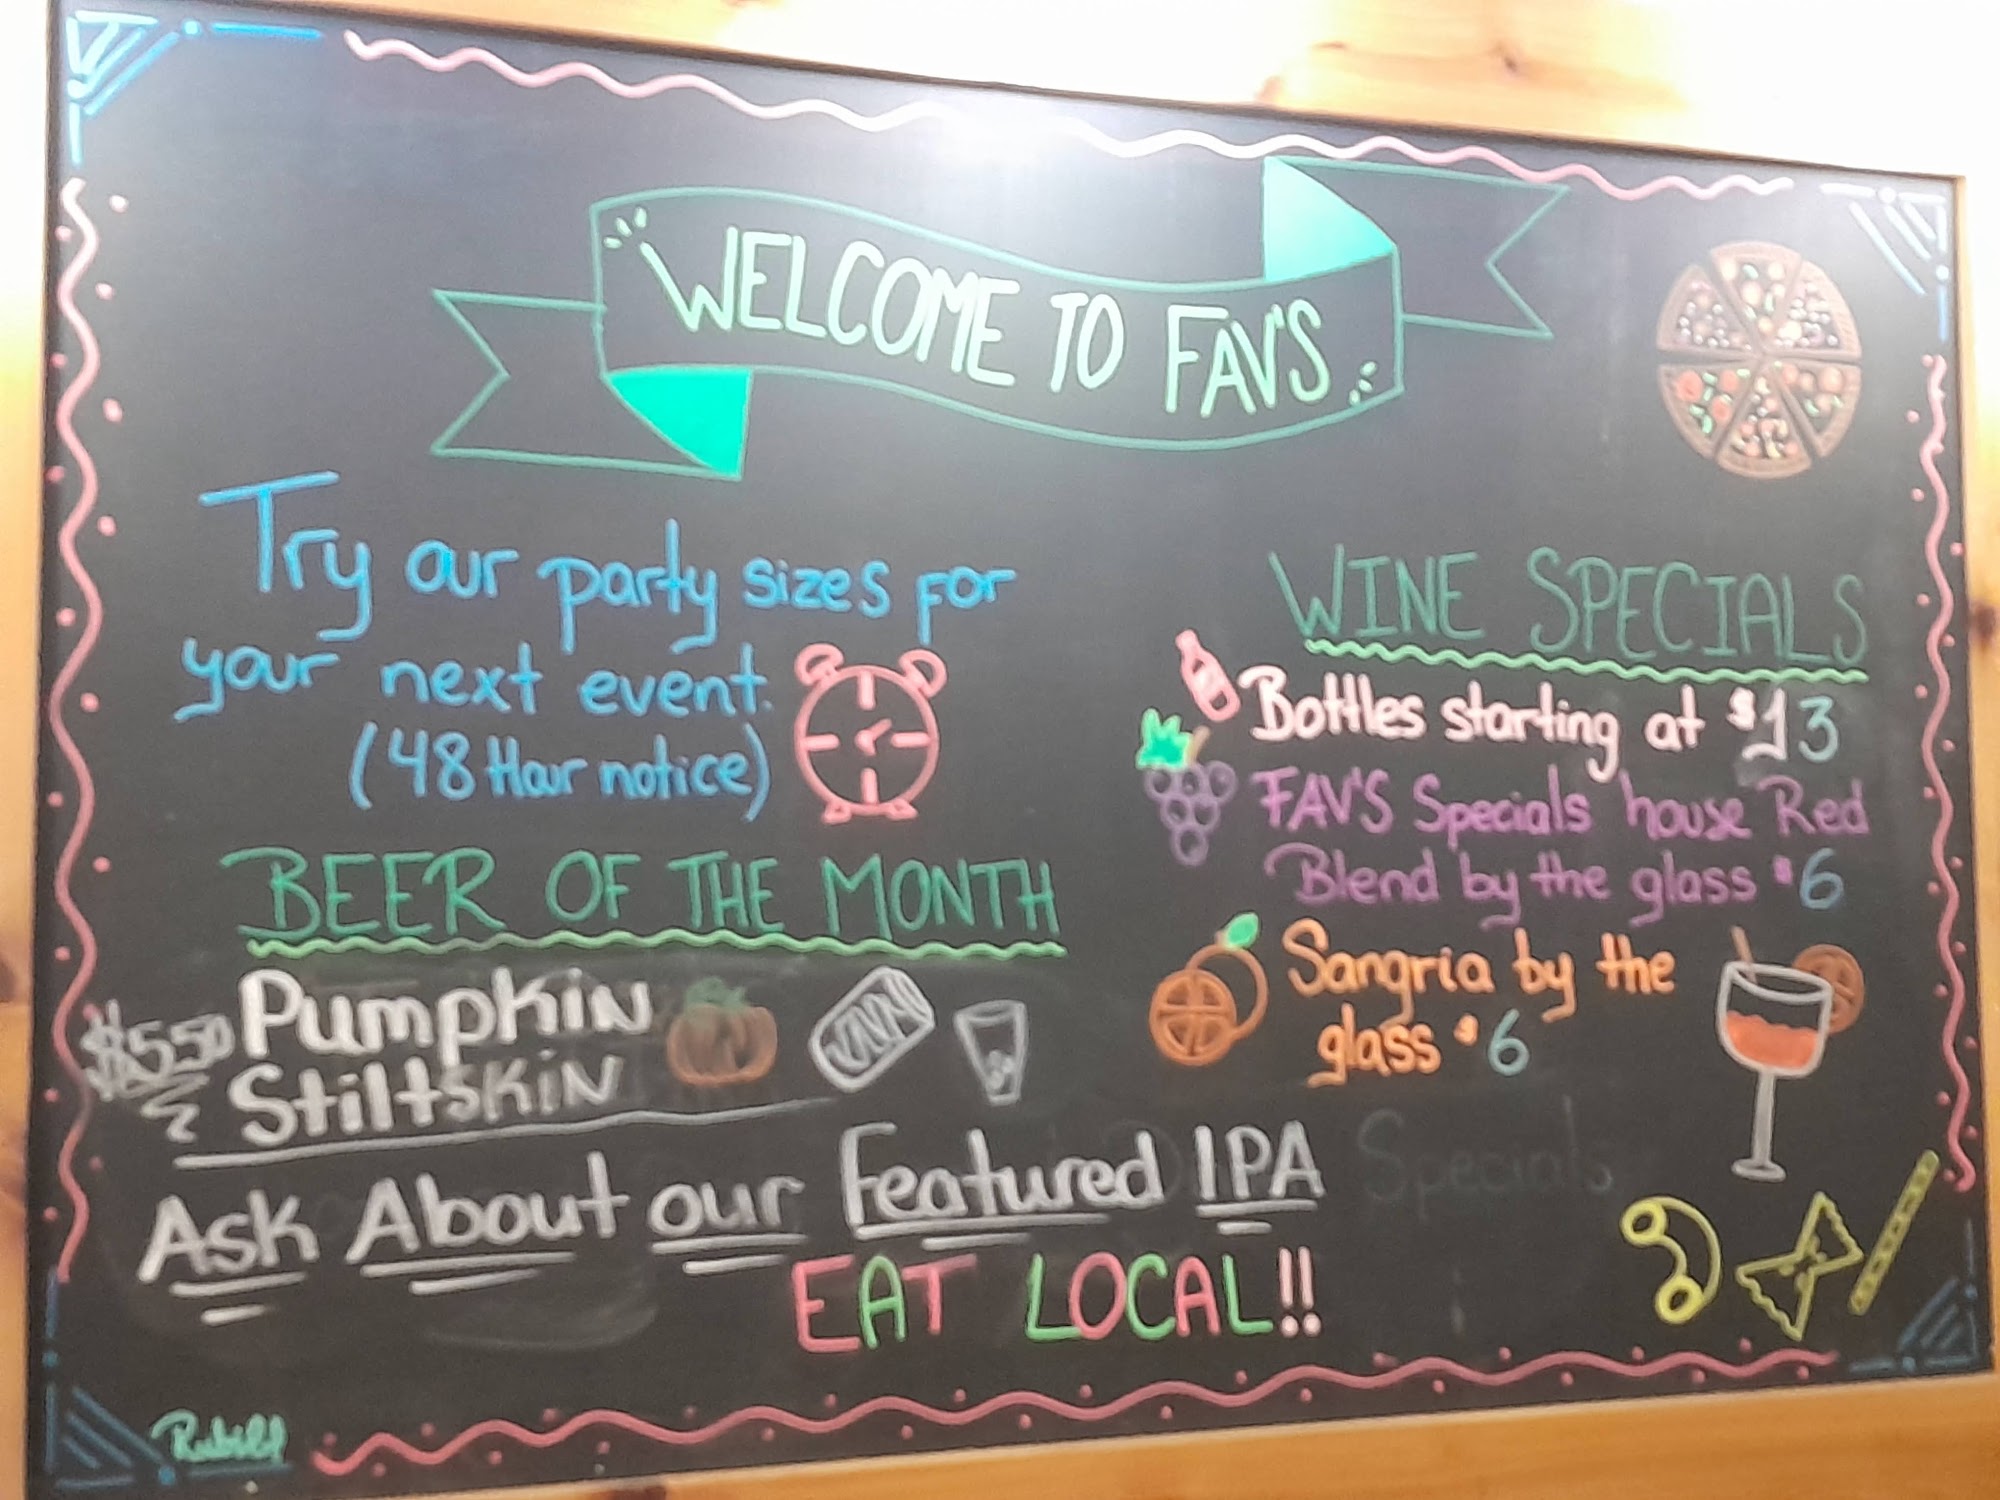 WELCOME TO FAV'S
Try our party sizes for
your next event.
(48 Hour notice)
BEER OF THE MONTH
$550 Pumpkin
Stiltskin
Ask About our Featured IPA
EAT LOCAL!!
WINE SPECIALS
Bottles starting at $13
FAV'S Specials house Red
Blend by the glass $6
Sangria by the
glass $6
Specials